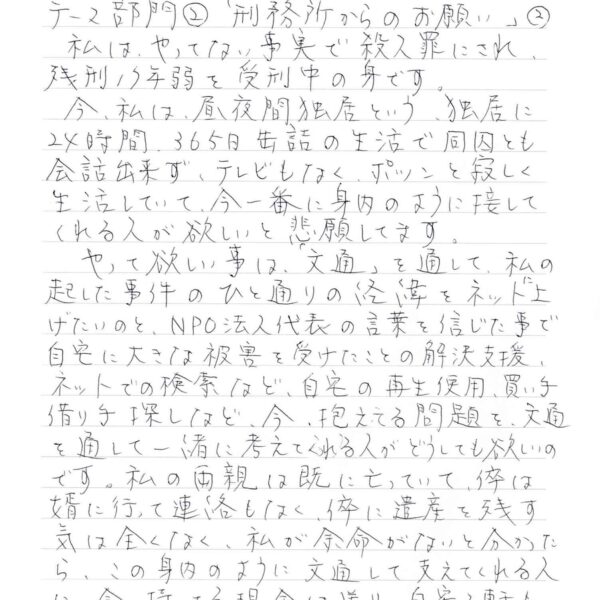 テーマ部門②「刑務所からのお願い」②
私は、やってない事実で殺人罪にされ、
残刑15年弱を受刑中の身です。
今、私は、昼夜間独居という、独居に
24時間、365日缶詰の生活で同囚とも
会話出来ず、テレビもなく、ポツンと寂しく
生活していて、今一番に身内のように接して
くれる人が欲しいと悲願してます。
やって欲しい事は、「文通」を通して、私の
起した事件のひと通りの経緯をネットに上
げたいのと、NPO法人代表の言葉を信じた事で
自宅に大きな被害を受けたことの解決支援、
ネットでの検索など、自宅の再生使用、買い手
借り手探しなど、今、抱えてる問題を、文通
を通して一緒に考えてくれる人がどうしても欲しいの
です。私の両親は既に亡っていて、倅は
婿に行って連絡もなく、倅に遺産を残す
気は全くなく、私が余命がないと分かった
ら、この身内のように文通して支えてくれる人